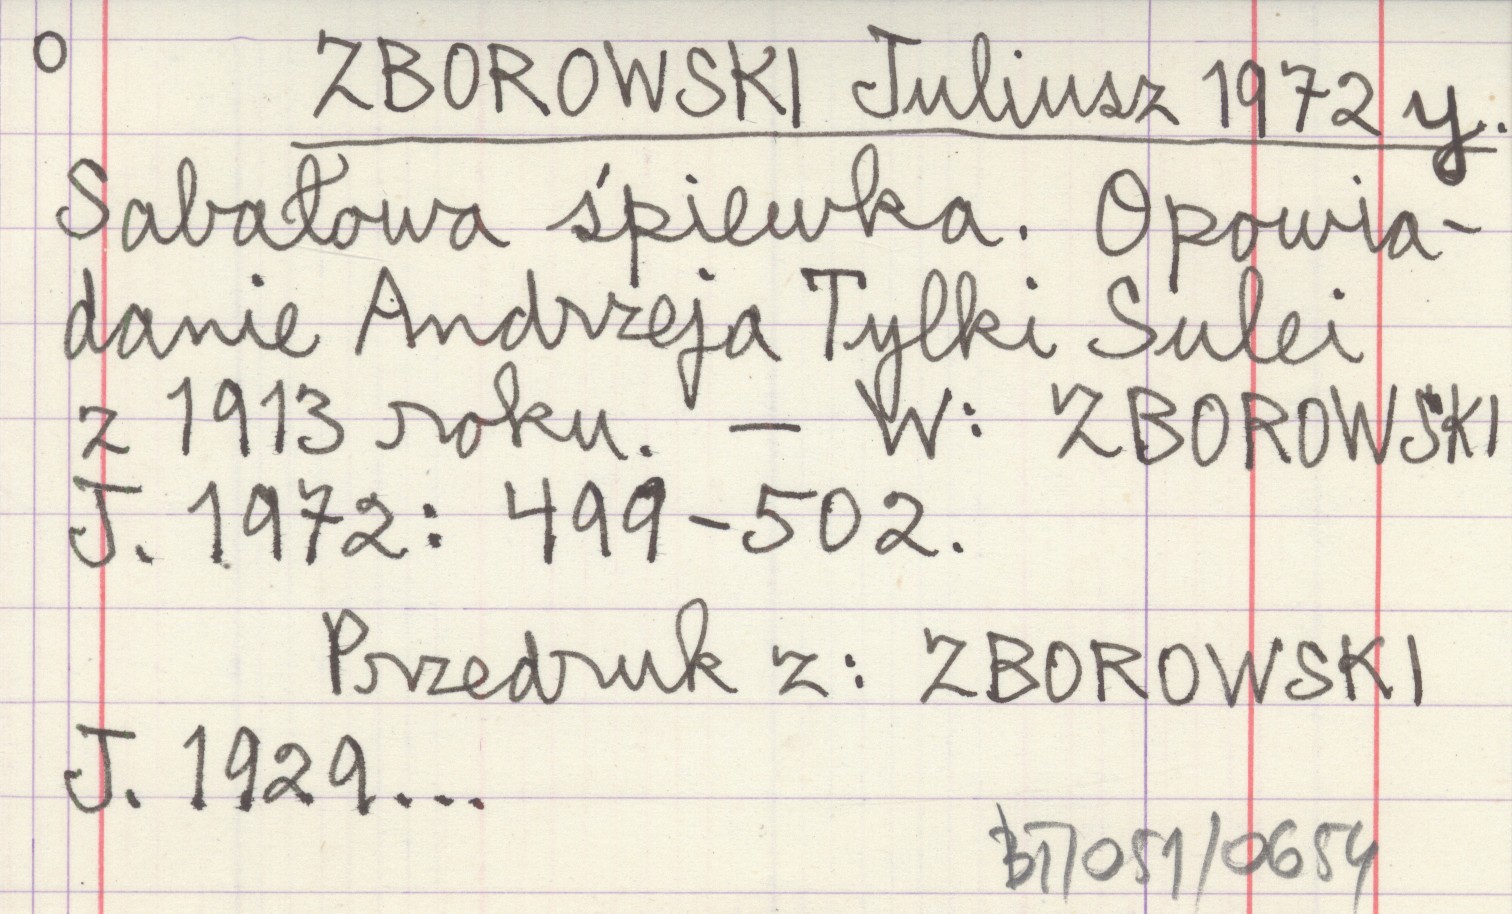 O ZBOROWSKI Juliusz 1972 y.
Sabałowa śpiewka. Opowia-
danie Andrzeja Tylki Sulei
z 1913 roku. — W: ZBOROWSKI
J. 1972: 499-502.
Przedruk z: ZBOROWSKI
J. 1929...
BT/051/0654